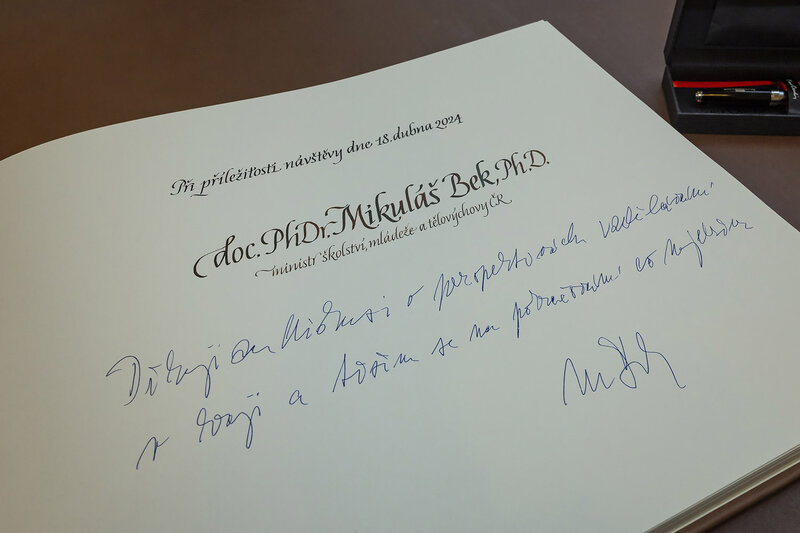 Při příležitosti návštěvy dne 18. dubna 2024
doc. PhDr. Mikuláš Bek, Ph.D.
ministr školství, mládeže a tělovýchovy ČR
Děkuji za diskusi o perspektivách vzdělávání
v kraji a těším se na pokračování co nejdříve